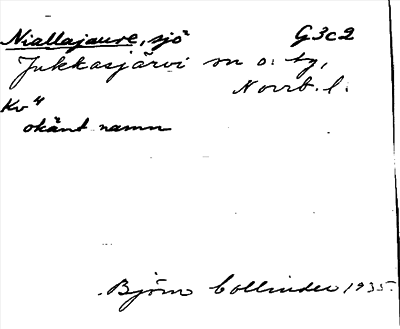 Niallajaure, sjö G3c2
Jukkasjärvi sn o. tg,
Norrb. l.
Kv 4
okänt namn
Björn Collinder 1935.